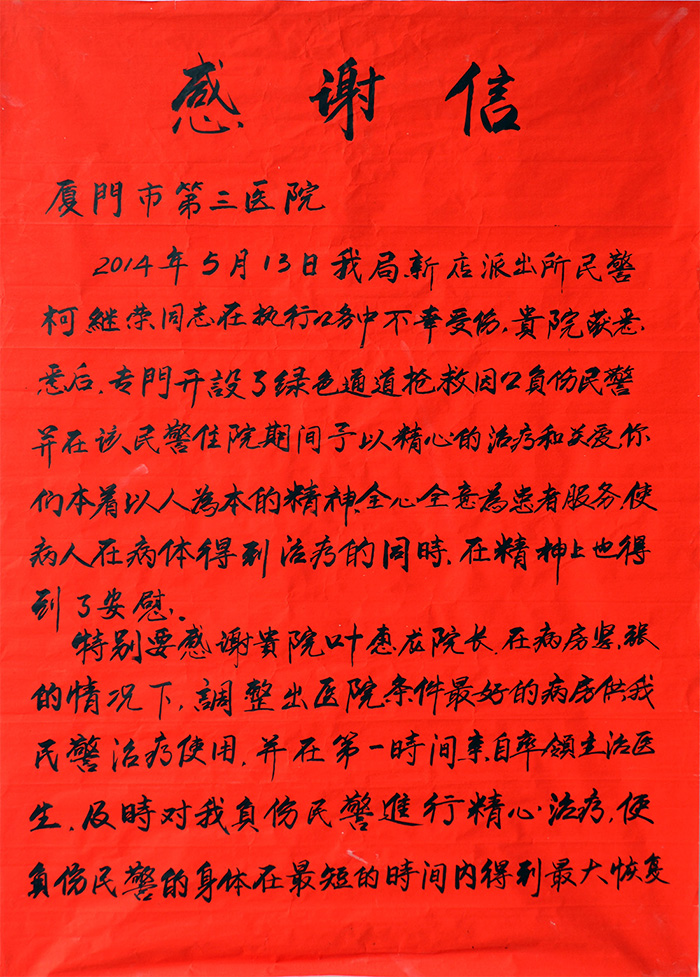 感謝信
厦門市第三医院
2014年5月13日我局新店派出所民警
柯継荣同志在执行公务中不幸受伤,貴院获悉
悉后,专門开設了绿色通道抢救因公负伤民警
并在该民警住院期间予以精心的治疗和关爱,你
们本着以人為本的精神,全心全意為患者服务,使
病人在病体得到治疗的同時,在精神上也得
到了安慰.
特别要感谢貴院叶惠龙院长,在病房紧張
的情况下,調整出医院条件最好的病房供我
民警治疗使用,并在第一時间亲自率領主治医
生,及時对我负伤民警進行精心治疗,使
負伤民警的身体在最短的時间内得到最大恢复